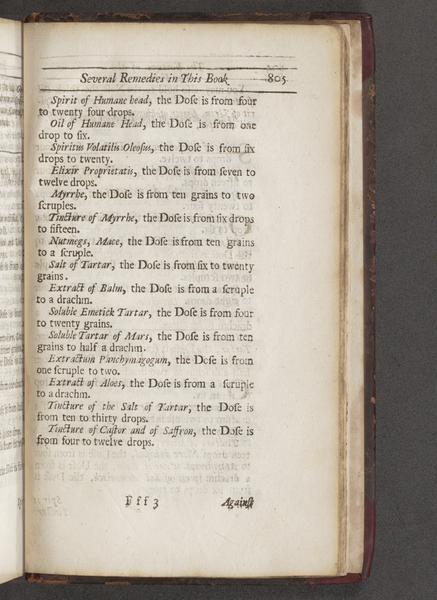 Several Remedies in This Book. 805
Spirit of Humane head, the Dose is from four
to twenty four drops.
Oil of Humane Head, the Dose is from one
drop to six.
Spiritus Volatilis Oleosus, the Dose is from six
drops to twenty.
Elixir Proprietatis, the Dose is from seven to
twelve drops.
Myrrhe, the Dose is from ten grains to two
scruples.
Tincture of Myrrhe, the Dose is from six drops
to fifteen.
Nutmegs, Mace, the Dose is from ten grains
to a scruple.
Salt of Tartar, the Dose is from six to twenty
grains.
Extract of Balm, the Dose is from a scruple
to a drachm.
Soluble Emetick Tartar, the Dose is from four
to twenty grains.
Soluble Tartar of Mars, the Dose is from ten
grains to half a drachm.
Extractum Panchymagogum, the Dose is from
one scruple to two.
Extract of Aloes, the Dose is from a scruple
to a drachm.
Tincture of the Salt of Tartar, the Dose is
from ten to thirty drops.
Tincture of Castor and of Saffron, the Dose is
from four to twelve drops.
Fff 3 Against